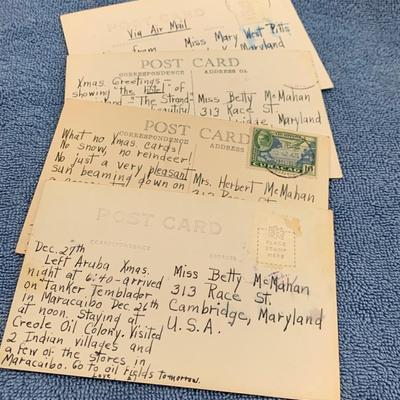 Via Air Mail
from
Miss Mary West Pitts
Maryland
POST CARD
CORRESPONDENCE
ADDRESS
Xmas Greetings
showing "the
of
"The Strand
Miss Betty McMahan
313 Race St.
Cambridge, Maryland
POST CARD
CORRESPONDENCE
ADDRESS
What no Xmas cards!
No snow, no reindeer!
No just a very pleasant
sun beaming down on
Mrs. Herbert McMahan
CURACAO
10
POST CARD
CORRESPONDENCE
ADDRESS
PLACE
STAMP
HERE
Dec. 27th
Left Aruba Xmas
night at 6:40-arrived
on Tanker Temblador
in Maracaibo Dec. 26th
at noon. Staying at
Creole Oil Colony. Visited
2 Indian villages and
a few of the stores in
Maracaibo. Go to oil fields tomorrow.
Love
Miss Betty McMahan
313 Race St.
Cambridge, Maryland
U.S.A.